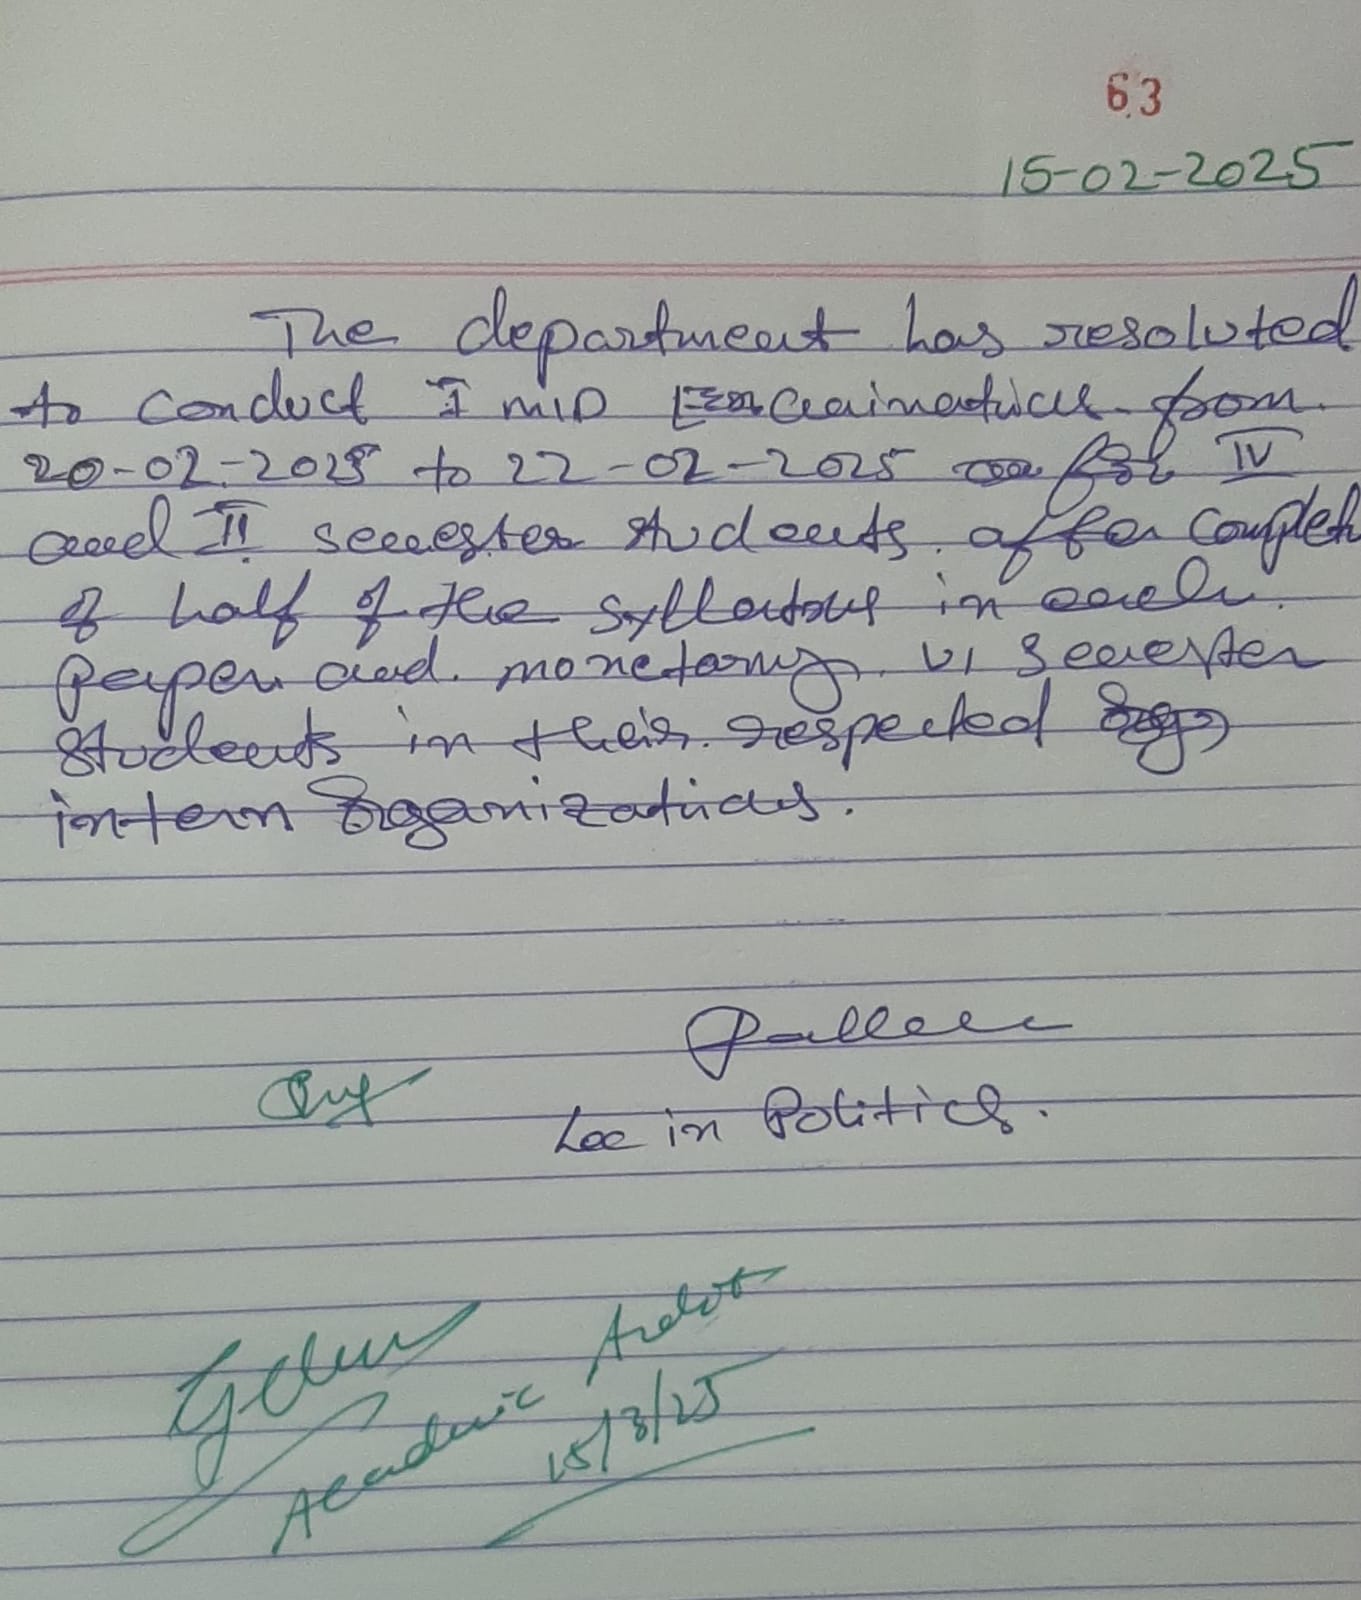 63
15-02-2025
The department has resoluted
to conduct I MID Examinations from
20-02-2025 to 22-02-2025 for IV
and II semester students after Complet
of half of the syllabus in each
paper and monetarng VI semester
students in their respected
intern Organizations.
Lec in Politics.
Academic Audit
15/3/25